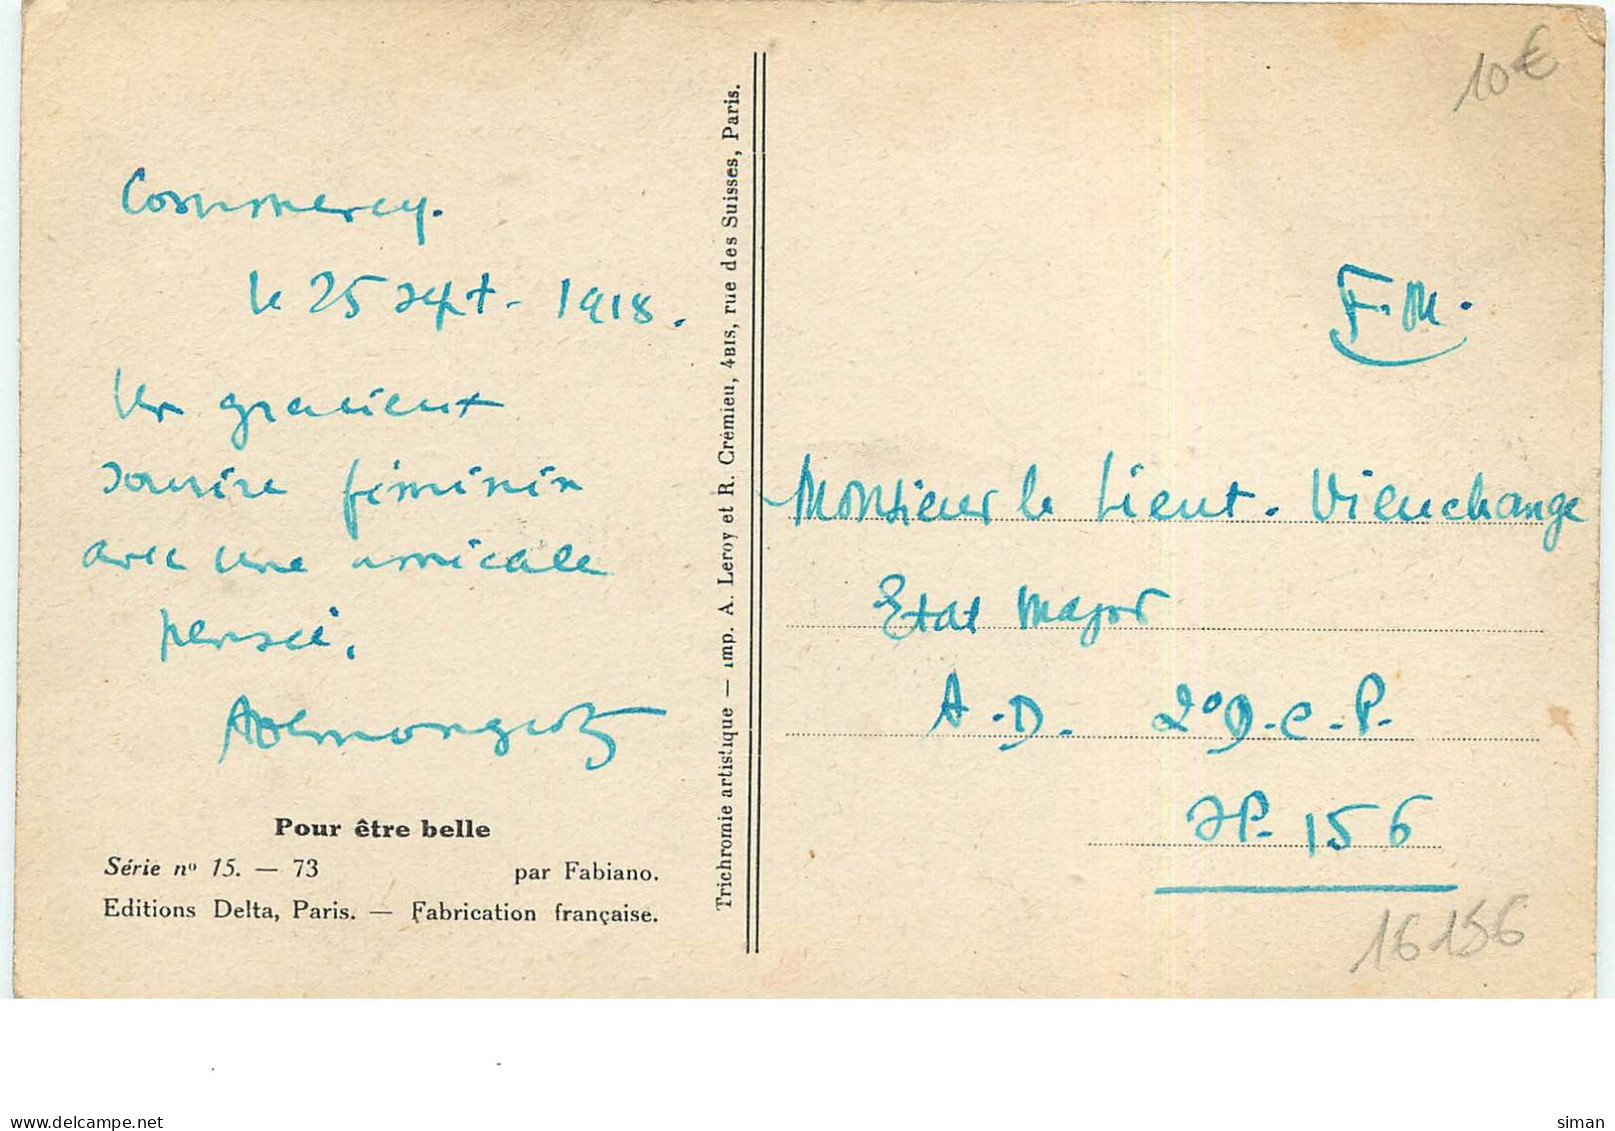 Commercy.
le 25 sept - 1918.
Un gracieux
sourire féminin
avec une amicale
pensée.
Pour être belle
Série nº 15. — 73 par Fabiano.
Editions Delta, Paris. — Fabrication française.
Trichromie artistique — Imp. A. Leroy et R. Crémieu, 4BIS, rue des Suisses, Paris.
10€
F.M.
Monsieur le Lieut. Vieuchange
Etat Major
A.D. 2º D.C.P.
SP. 156
16156
delcampe.net
siman